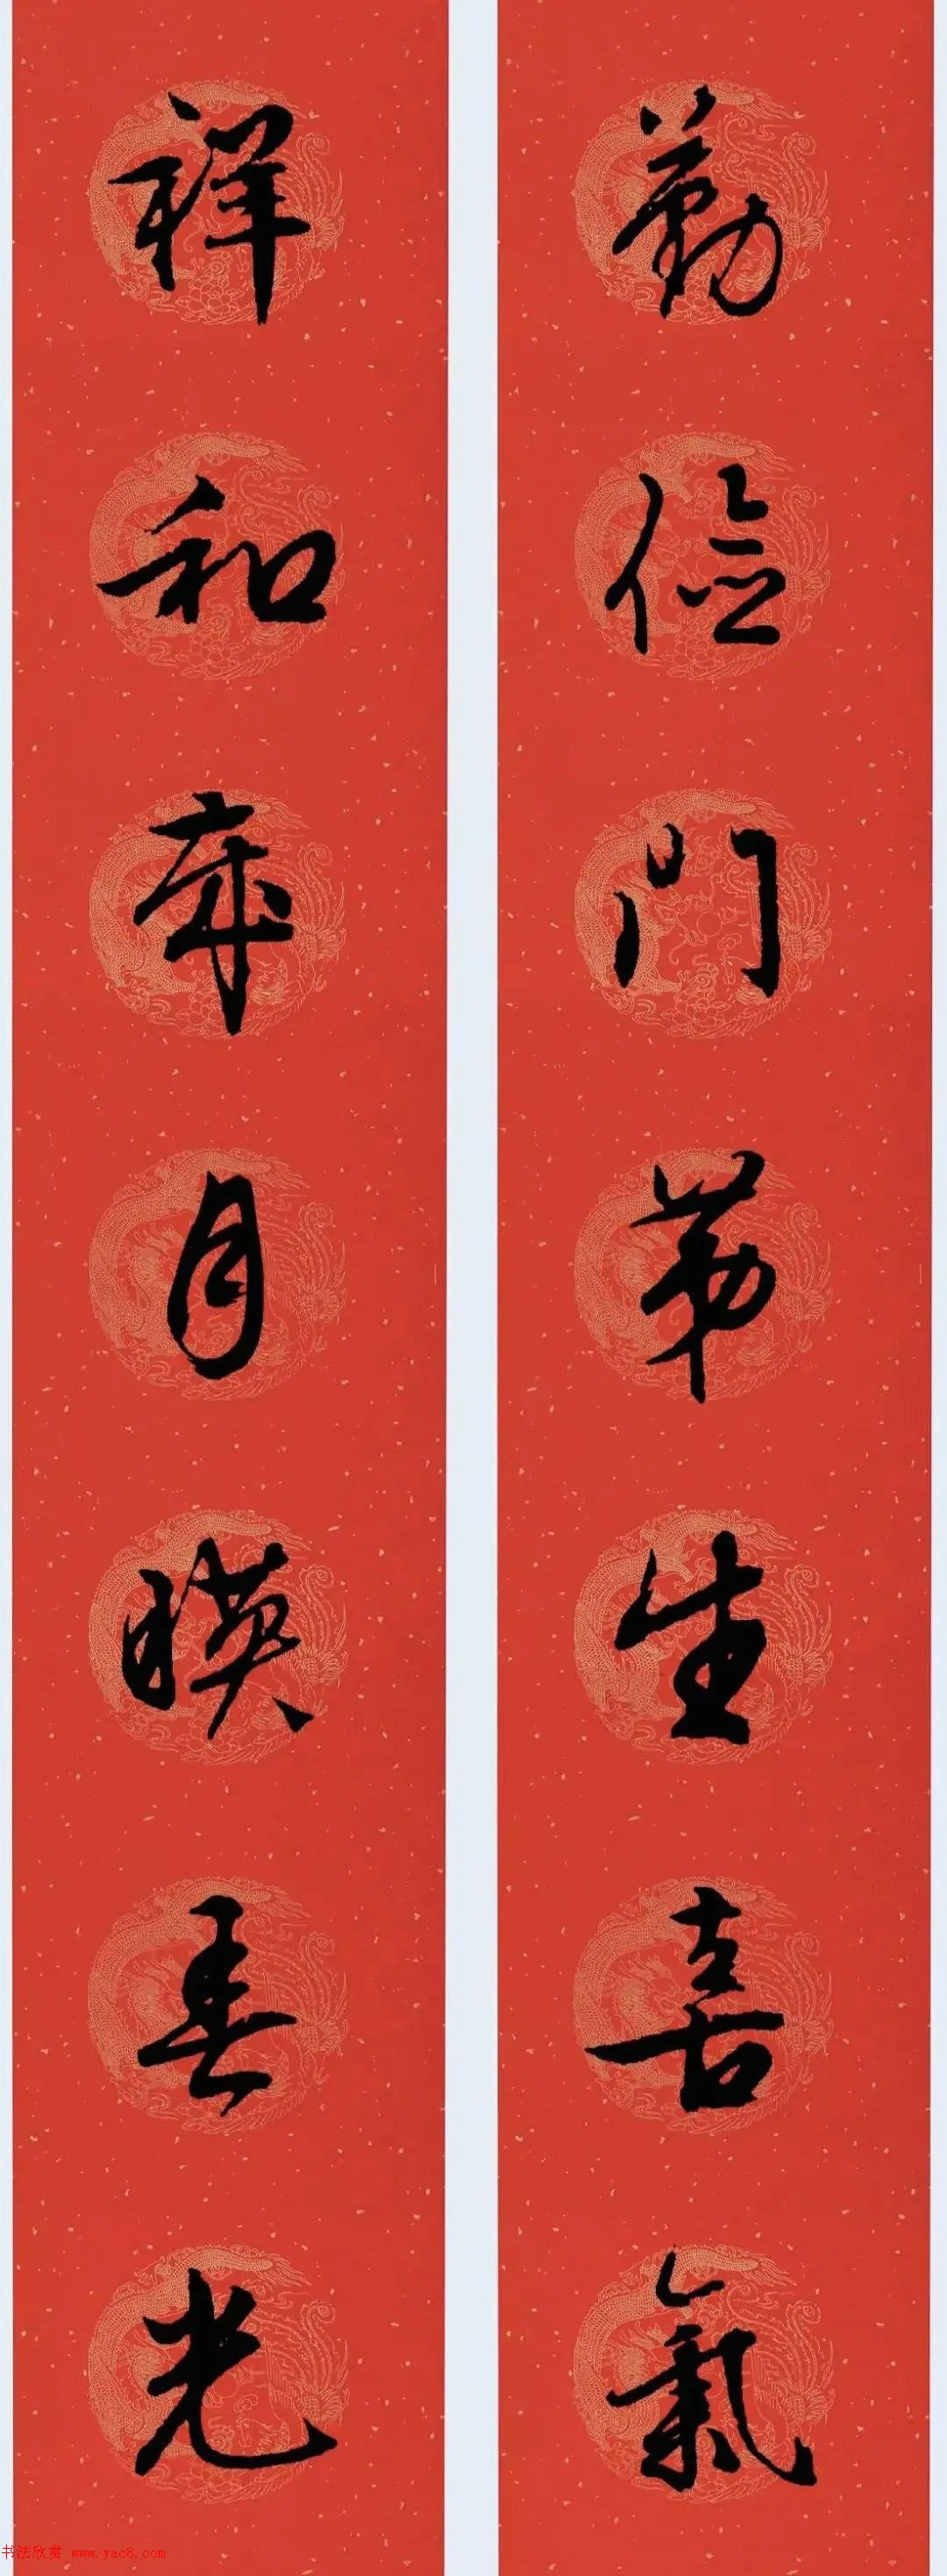 勤俭门第生喜氣
祥和年月暎春光
书法欣赏 www.yac8.com